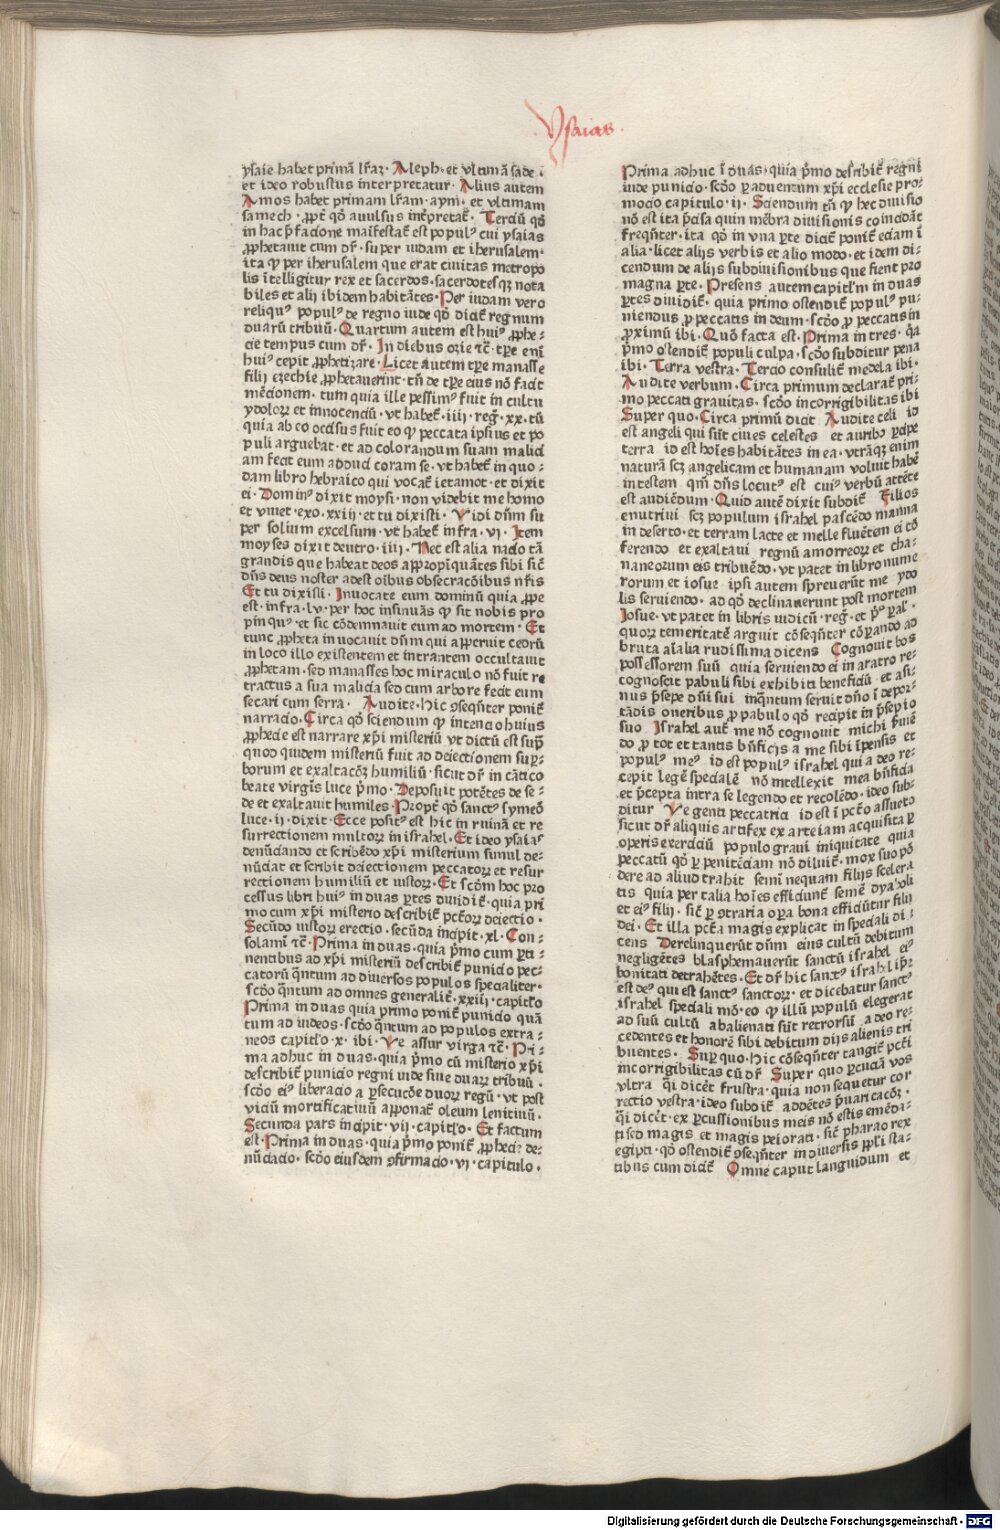 Ysaias.
ysaie habet primā lr̄aꝫ · Aleph · et vltimā sade ·
et ideo robustus interpretatur · Alius autem
Amos habet primam lr̄am · aym · et vltimam
samech · ꝓpt̄ qd̄ auulsus int̄pretat̄ · Terciū qd̄
in hac p̄facione maīfestat̄ est popul⁹ cui ysaias
ꝓphetauit cum dr̄ · super iudam et iherusalem ·
ita ꝙ per iherusalem que erat ciuitas metropo
lis ītelligitur rex et sacerdos · sacerdotesqꝫ nota
biles et alij ibidem habitātes · Per iudam vero
reliqu⁹ popul⁹ de regno iude qd̄ dicit̄ regnum
duarū tribuū · Quartum autem est hui⁹ ꝓphe-
cie tempus cum dr̄ · In diebus ozie ⁊c̄ · tp̄e eni
hui⁹ cepit ꝓphetizare · Licet autem tp̄e manasse
filij ezechie ꝓphetauerint · tn̄ de tp̄e eius nō facit
mēcionem · tum quia ille pessim⁹ fuit in cultu
ydoloꝝ et innocenciū · vt habet̄ · iiij · reḡ · xx · tū
quia ab eo occisus fuit eo ꝙ peccata ipsius et po
puli arguebat · et ad colorandum suam malici
am fecit eum adduci coram se · vt habet̄ in quo-
dam libro hebraico qui vocat̄ ietamot · et dixit
ei · Domin⁹ dixit moysi · non videbit me homo
et viuet · exo · xxiij · et tu dixisti · Vidi dn̄m su
per solium excelsum · vt habet̄ infra · vi · Item
moyses dixit deutro · iiij · Nec est alia nacio tā
grandis que habeat deos appropīquātes sibi sic̄
dn̄s deus noster adest oībus obsecracōibus nr̄is
Et tu dixisti · Inuocate eum dominū quia ꝓpe
est · infra · lv · per hoc insinuās ꝙ sit nobis pro
pinqu⁹ · et sic cōdemnauit eum ad mortem · Et
tunc ꝓpheta inuocauit dn̄m qui apperuit cedrū
in loco illo existentem et intrantem occultauit
ꝓphetam · sed manasses hoc miraculo nō fuit re
tractus a sua malicia sed cum arbore fecit eum
secari cum serra · Audite · hic ꝯseqn̄ter ponit̄
narracio · Circa qd̄ sciendum ꝙ intencio huius
ꝓphecie est narrare xp̄i misteriū vt dictū est sup̄
quod quidem misteriū fuit ad deiectionem sup̄-
borum et exaltacōꝫ humiliū · sicut dr̄ in cātico
beate virgīs luce p̄mo · Deposuit potētes de se-
de et exaltauit humiles · Propt̄ qd̄ sanct⁹ symeō
luce · ij · dixit · Ecce posit⁹ est hic in ruinā et re
surrectionem multoꝝ in israhel · Et ideo ysaias
denūciando et scribēdo xp̄i misterium simul de-
nūciat et scribit deiectionem peccatoꝝ et resur
rectionem humiliū et iustoꝝ · Et scd̄m hoc pro
cessus libri hui⁹ in duas ꝑtes diuidit̄ · quia pri
mo cum xp̄i misterio describit̄ pct̄oꝝ deiectio ·
Secūdo iustoꝝ erectio · secūda incipit · xl · Con-
solamī ⁊c̄ · Prima in duas · quia p̄mo cum ꝑti-
nentibus ad xp̄i misteriū describit̄ punicio pec-
catorū qn̄tum ad diuersos populos specialiter ·
scd̄o qn̄tum ad omnes generalit̄ · xxiij · capitl̄o
Prima in duas quia primo ponit̄ punicio quā
tum ad iudeos · scd̄o qn̄tum ad populos extra-
neos capitl̄o · x · ibi · Ve assur virga ⁊c̄ · Pri-
ma adhuc in duas · quia p̄mo cū misterio xp̄i
describit̄ punicio regni iude siue duaꝝ tribuū ·
scd̄o ei⁹ liberacio a ꝑsecucōe duoꝝ regū · vt post
viciū mortificatiuū apponat̄ oleum lenitiuū ·
Secunda pars incipit · vij · capitl̄o · Et factum
est · Prima in duas · quia p̄mo ponit̄ ꝓphecie de-
nūciacio · scd̄o eiusdem ꝯfirmacio · vi · capitulo ·
Prima adhuc ī duas · quia p̄mo describit̄ regni
iude punicio · scd̄o ꝑ aduentum xp̄i ecclesie pro-
mocio capitulo · ij · Sciendum tn̄ ꝙ hec diuisio
nō est ita p̄cisa quin mēbra diuisionis coincidāt
freqn̄ter · ita qd̄ in vna ꝑte dicit̄ ponit̄ eciam ī
alia · licet alijs verbis et alio modo · et idem di-
cendum de alijs subdiuisionibus que fient pro
magna ꝑte · Presens autem capitl̄m in duas
ꝑtes diuidit̄ · quia primo ostendit̄ popul⁹ pu-
niendus ꝓ peccatis in deum · scd̄o ꝓ peccatis in
ꝓximū ibi · Quō facta est · Prima in tres · q̄a
p̄mo ostendit̄ populi culpa · scd̄o subditur pena
ibi · Terra vestra · Tercio consulit̄ medela ibi ·
Audite verbum · Circa primum declarat̄ pri-
mo peccati grauitas · scd̄o incorrigibilitas ibi
Super quo · Circa primū dicit Audite celi id
est angeli qui sūt ciues celestes et aurib⁹ ꝑcipe
terra id est hoīes habitātes in ea · vtrāqꝫ enim
naturā scꝫ angelicam et humanam voluit habē
in testem qm̄ dn̄s locut⁹ est cui⁹ verbū attēte
est audiēdum · Quid autē dixit subdit̄ Filios
enutriui scꝫ populum israhel pascēdo manna
in deserto · et terram lacte et melle fluētem ei cō
ferendo et exaltaui regnū amorreoꝝ et cha-
naneorum eis tribuēdo · vt patet in libro nume
rorum et iosue ipsi autem spreuerūt me ydo
lis seruiendo · ad qd̄ declinauerunt post mortem
Iosue · vt patet in libris iudicū · reḡ · et p̄⁹ ꝑal̄ ·
quoꝝ temeritatē arguit cōseqn̄ter cōꝑando ad
bruta aīalia rudissima dicens Cognouit bos
possessorem suū quia seruiendo ei in aratro re-
cognoscit pabuli sibi exhibiti beneficiū et asi-
nus p̄sepe dn̄i sui inqn̄tum seruit dn̄o ī depor-
tādis oneribus ꝓ pabulo qd̄ recipit in p̄sepio
suo Israhel aut̄ me nō cognouit michi s̄uiē
do ꝓ tot et tantis bn̄ficijs a me sibi īpensis et
popul⁹ me⁹ id est popul⁹ israhel qui a deo re-
cepit legē specialē nō intellexit mea bn̄ficia
et p̄cepta intra se legendo et recolēdo · ideo sub-
ditur Ve genti peccatrici id est ī pct̄o assueto
sicut dr̄ aliquis artifex ex arte iam acquisita ꝑ
operis exerciciū populo graui iniquitate quia
peccatū qd̄ ꝑ penitēciam nō diluit̄ · mox suo pō
dere ad aliud trahit semī nequam filijs scelera
tis quia per talia hoīes efficiunt̄ semē dyaboli
et ei⁹ filij · sic̄ ꝑ ꝯtraria oꝑa bona efficiūtur filij
dei · Et illa pct̄a magis explicat in speciali di-
cens Derelinquerūt dn̄m eius cultū debitum
negligētes blasphemauerūt sanctū israhel ei⁹
bonitati detrahētes · Et dr̄ hic sanct⁹ israhel ip̄e
est de⁹ qui est sanct⁹ sanctoꝝ · et dicebatur sanct⁹
israhel speciali mō · eo ꝙ illū populū elegerat
ad suū cultū abalienati sūt retrorsū a deo re-
cedentes et honorē sibi debitum dijs alienis tri
buentes · Suꝑ quo · hic cōseqn̄ter tangit̄ pct̄i
incorrigibilitas cū dr̄ Super quo ꝑcuciā vos
vltra q̄i dicēt frustra · quia non sequetur cor
rectio vestra · ideo subdit̄ addētes p̄uaricacōꝫ ·
q̄i dicēt · ex ꝑcussionibus meis nō estis emēda-
ti sed magis et magis peiorati · sic̄ pharao rex
egipti · qd̄ ostendit̄ ꝯseqn̄ter in diuersis ppl̄i sta-
tibus cum dicit̄ Omne caput languidum et
Digitalisierung gefördert durch die Deutsche Forschungsgemeinschaft - DFG